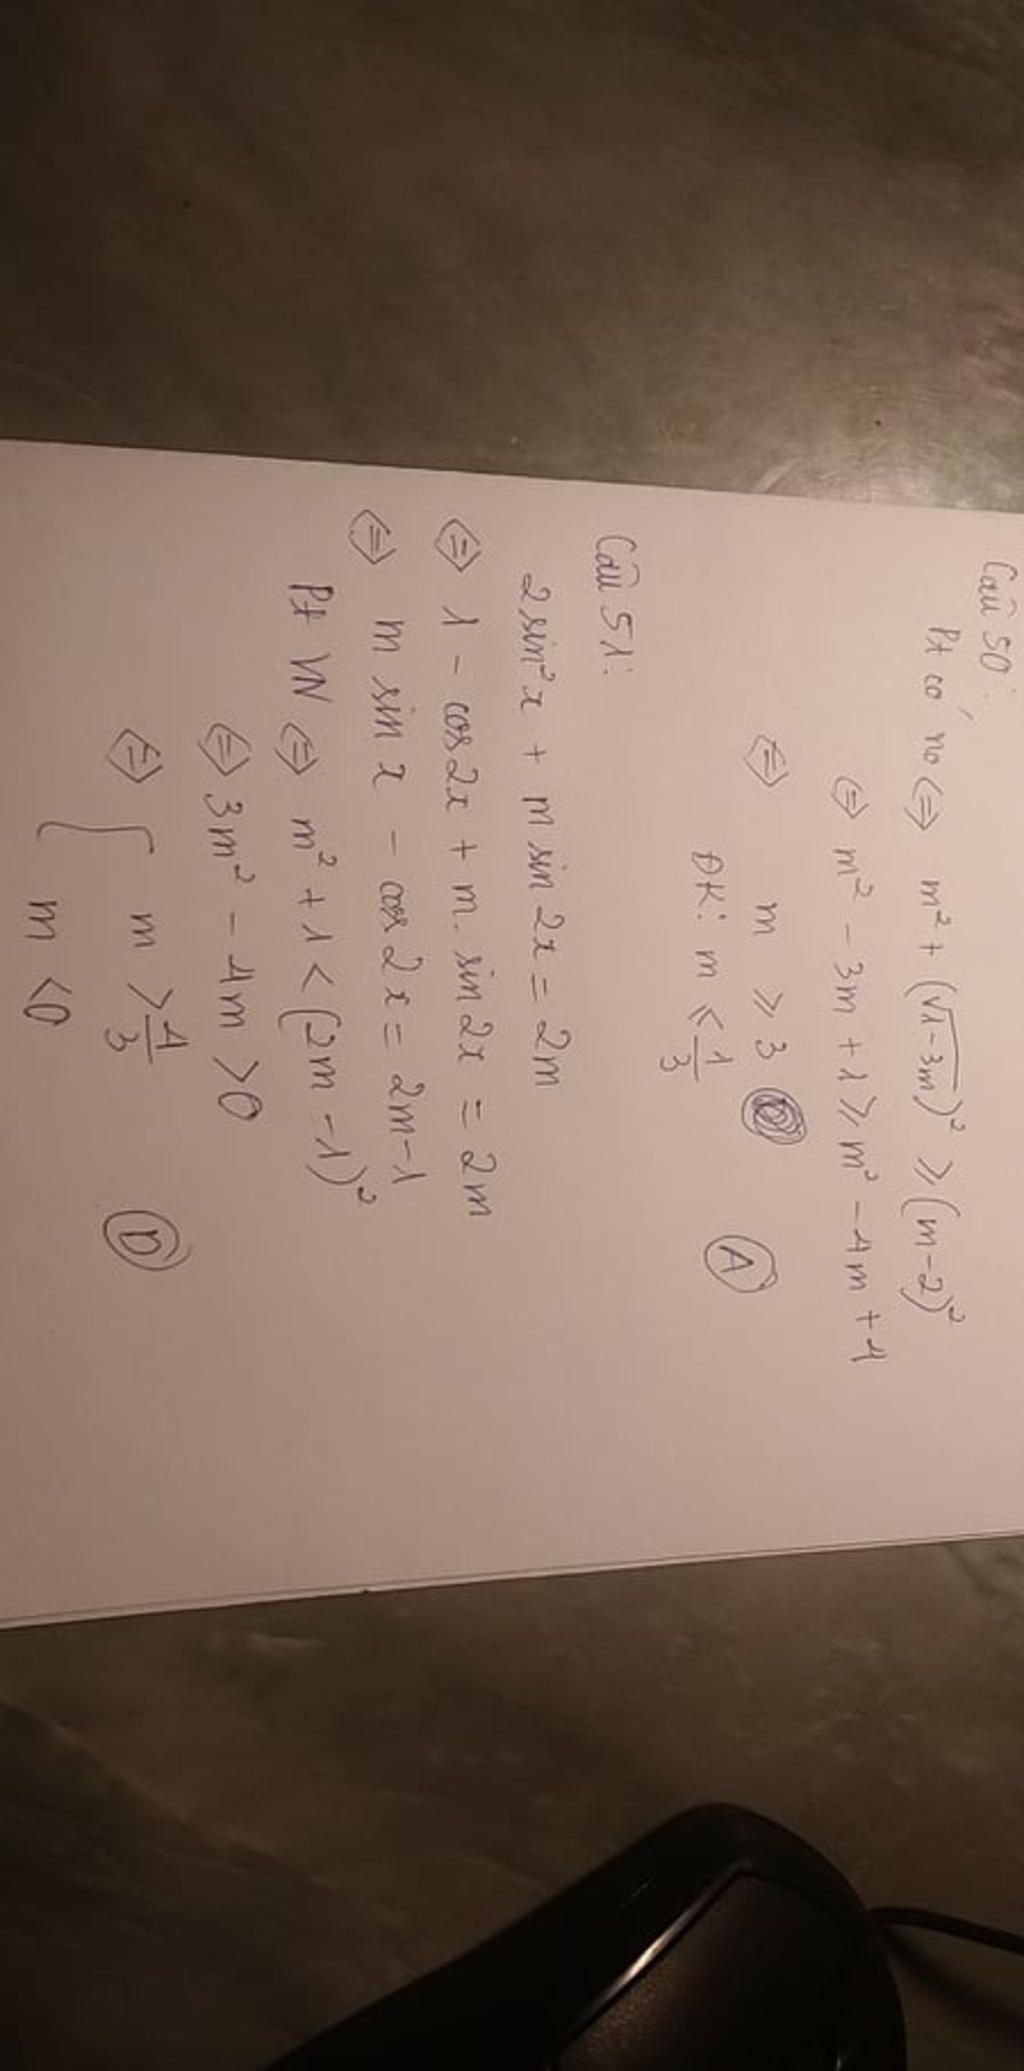 Câu 50:
Pt có no ⇔ m² + (√1-3m)² ≥ (m-2)²
⇔ m² - 3m + 1 ≥ m² - 4m + 4
⇔ m ≥ 3
ĐK: m ≤ 1/3 (A)
Câu 51:
2 sin²x + m sin 2x = 2m
⇔ 1 - cos 2x + m. sin 2x = 2m
⇔ m sin x - cos 2x = 2m-1
Pt VN ⇔ m² + 1 < (2m - 1)²
⇔ 3m² - 4m > 0
⇔ [ m > 4/3 (D)
m < 0